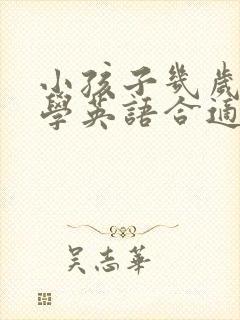 小孩子幾歲
學英語合適
吳志華